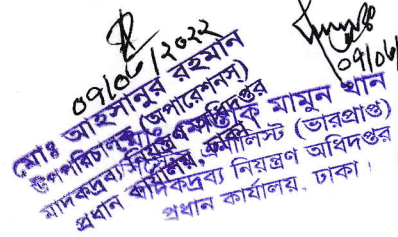 ০৭/০৬/২০২২
মোঃ আহসানুর রহমান
উপপরিচালক (অপারেশনস্)
মাদকদ্রব্য নিয়ন্ত্রণ অধিদপ্তর
প্রধান কার্যালয়, ঢাকা।
০৭/০৬/
মামুন খান
(ভারপ্রাপ্ত)
মাদকদ্রব্য নিয়ন্ত্রণ অধিদপ্তর
প্রধান কার্যালয়, ঢাকা।